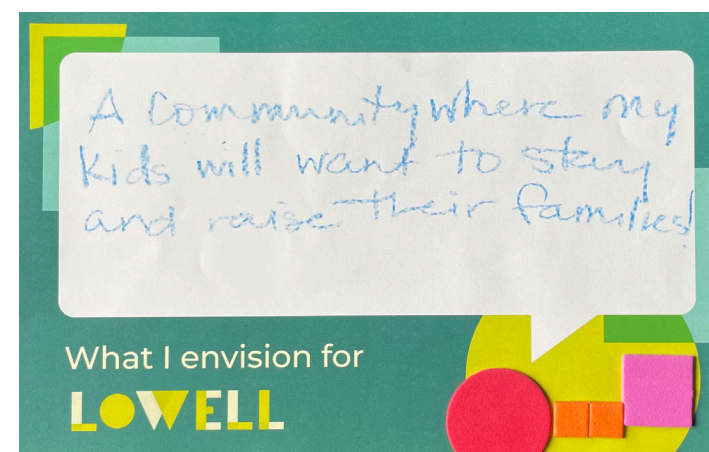 A Community where my
kids will want to stay
and raise their families
What I envision for
LOWELL